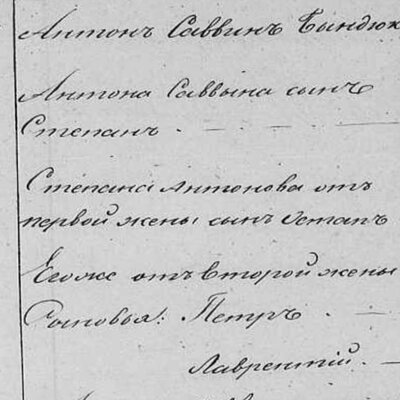 Антонъ Саввинъ Бындюк
Антона Саввына сынъ
Степанъ. —
Степана Антонова отъ
первой жены сынъ Остапъ
Его же отъ второй жены
Сыновья: Петръ. —
Лаврентій. —